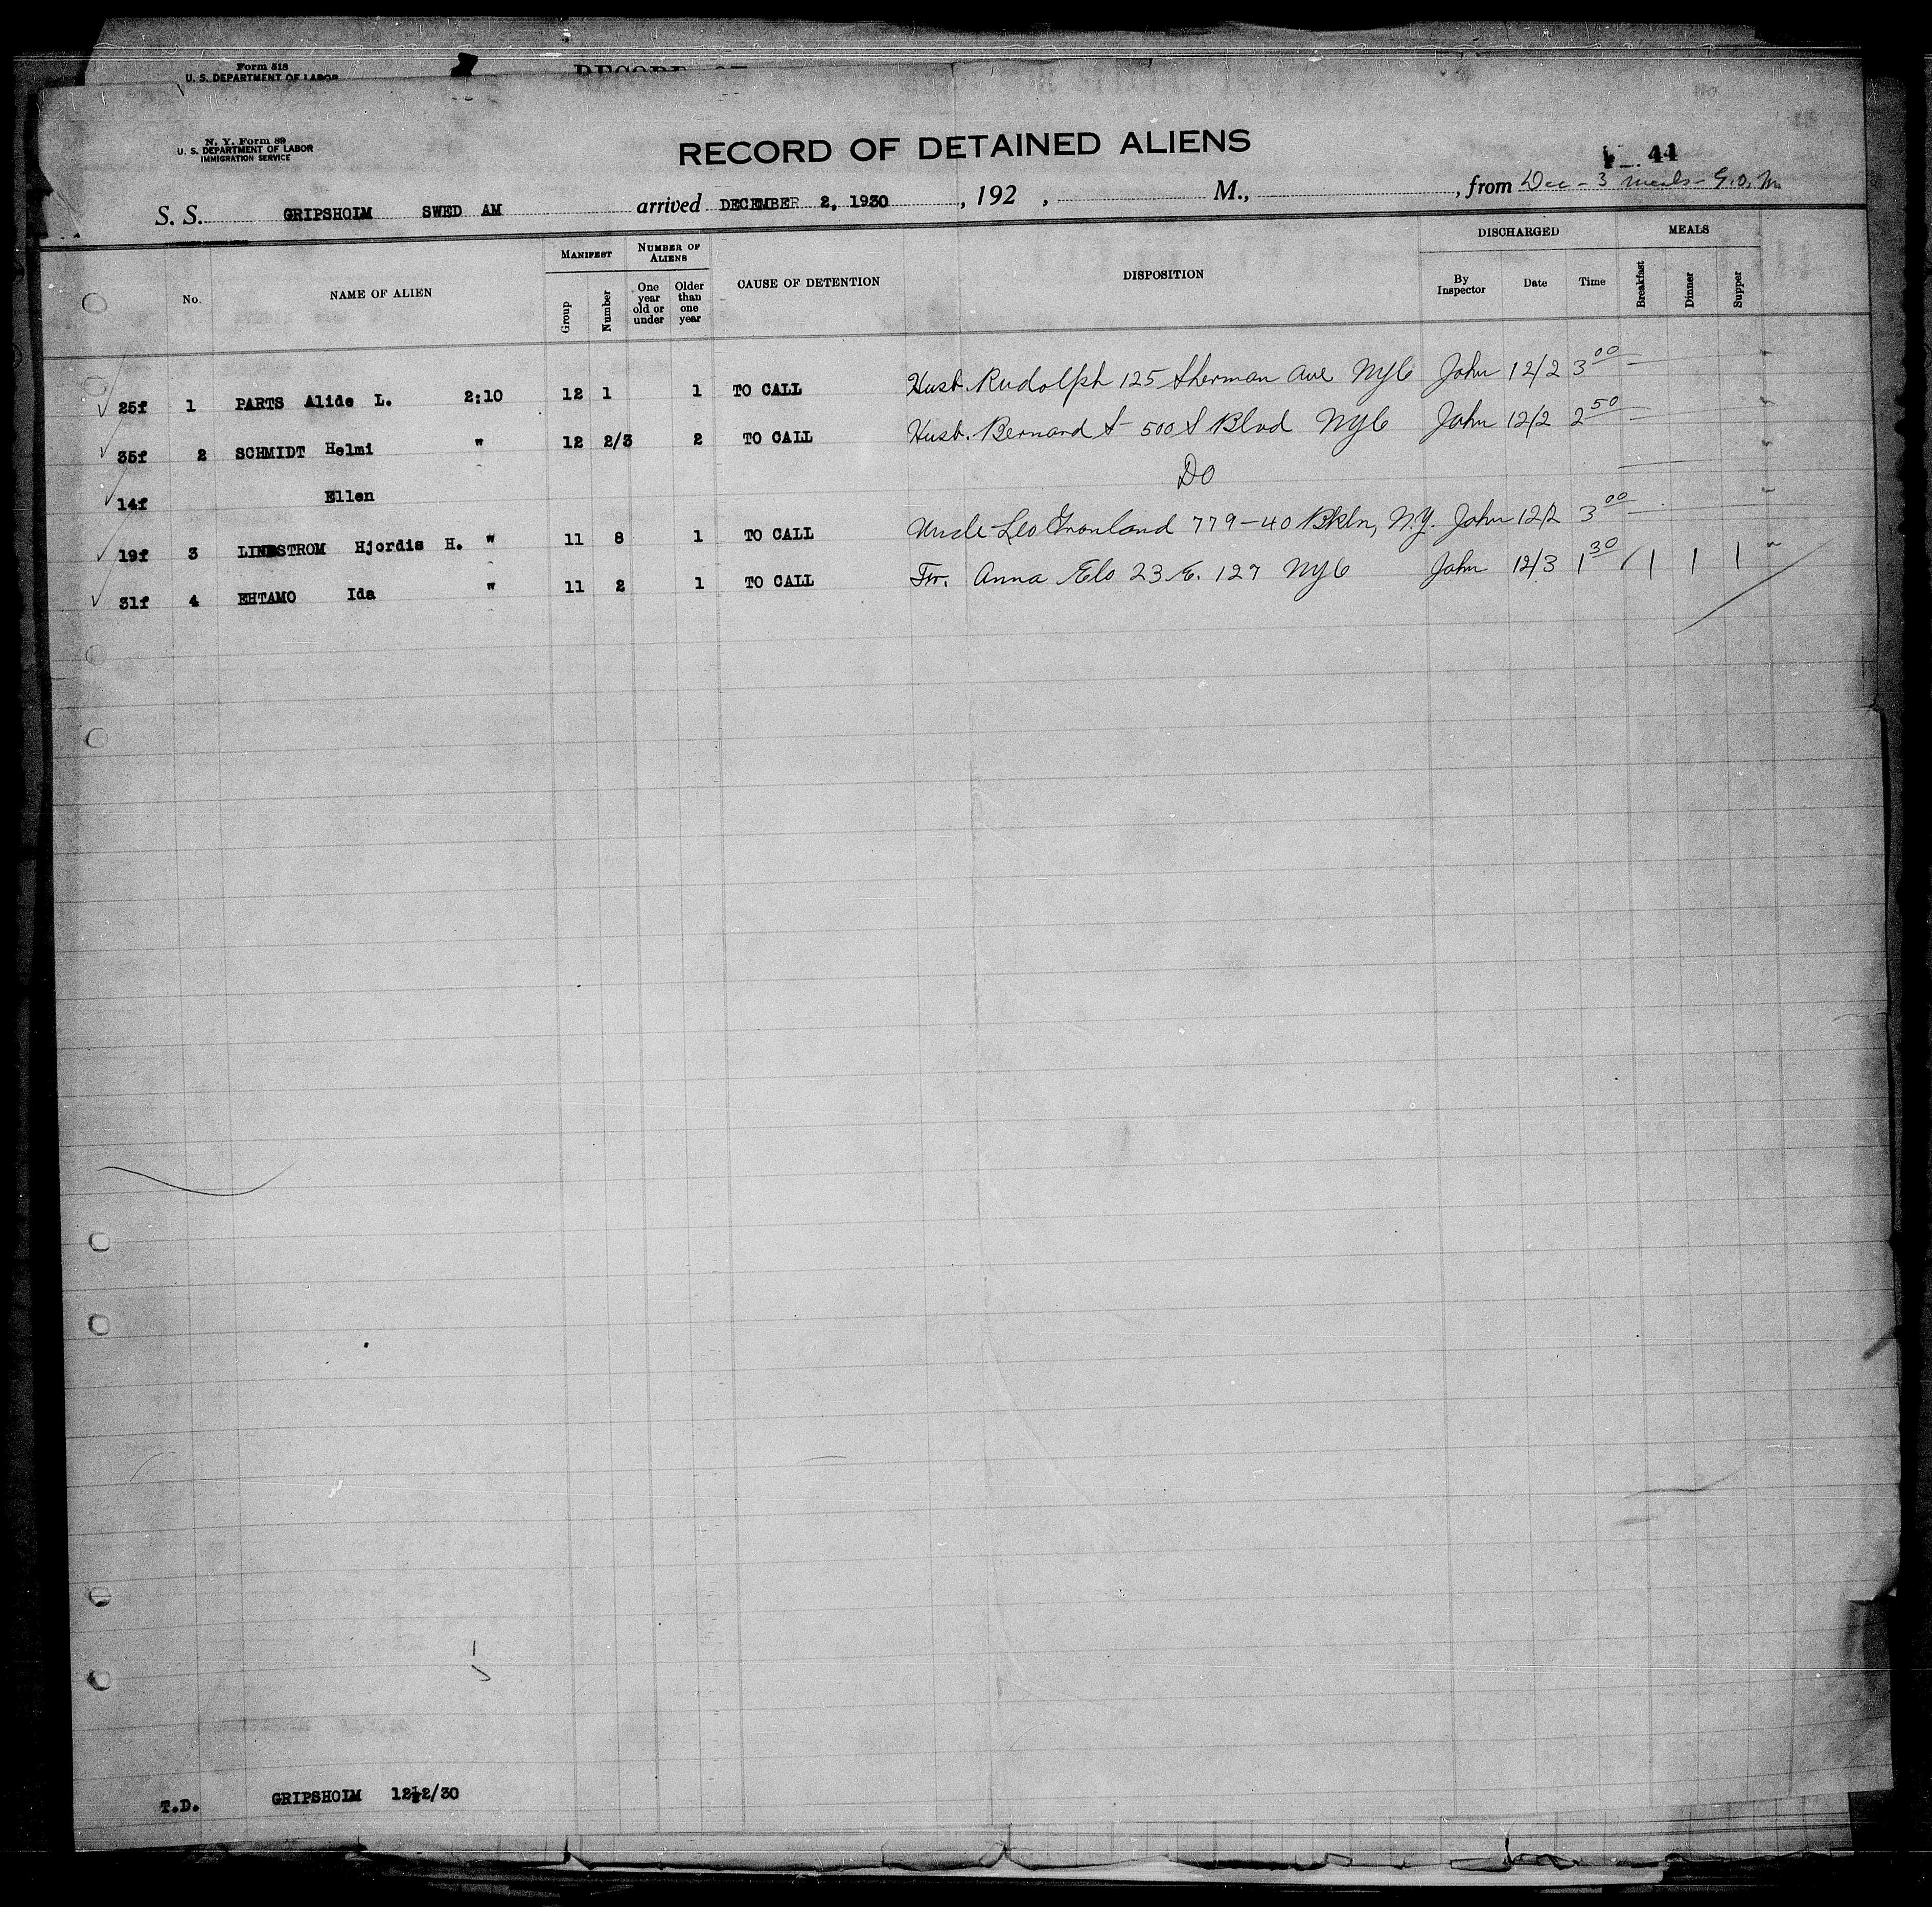 Form 518
U. S. DEPARTMENT OF LABOR
N. Y. Form 89
U. S. DEPARTMENT OF LABOR
IMMIGRATION SERVICE
RECORD OF DETAINED ALIENS
44
S. S. GRIPSHOIM SWED AM arrived DECEMBER 2, 1930, 192 , M., , from Dec - 3 meals - G.O.M.
No. NAME OF ALIEN MANIFEST NUMBER OF ALIENS CAUSE OF DETENTION DISPOSITION DISCHARGED MEALS
Group Number One year old or under Older than one year By Inspector Date Time Breakfast Dinner Supper
25f 1 PARTS Alide L. 2:10 12 1 1 TO CALL Husb. Rudolph 125 Sherman Ave NYC John 12/2 3 00 -
35f 2 SCHMIDT Helmi " 12 2/3 2 TO CALL Husb. Bernard S - 500 S Blvd NYC John 12/2 2 50 -
14f Ellen Do
19f 3 LINDSTROM Hjordis H. " 11 8 1 TO CALL Uncle Leo Gronland 779-40 Bkln, N.Y. John 12/2 3 00 -
31f 4 EHTAMO Ida " 11 2 1 TO CALL Fr. Anna Elo 23 E. 127 NYC John 12/3 1 30 1 1 1
T.D. GRIPSHOIM 12/2/30